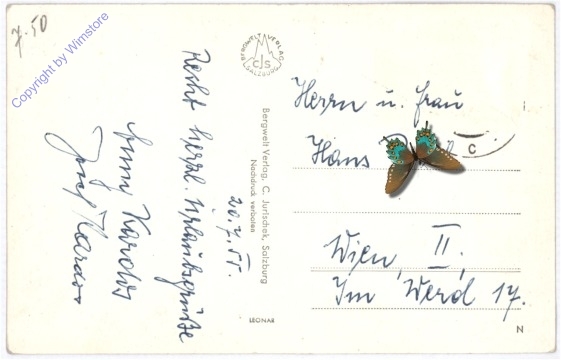 7.50
Copyright by Wimstore
Recht herzl. Urlaubsgrüße
20.7.55.
BERGWELT VERLAG
CJS
SALZBURG
Bergwelt Verlag, C. Jurischek, Salzburg
Nachdruck verboten
LEONAR
Herrn u. Frau
Hans
C
Wien, II.,
Im Werd 17.
N